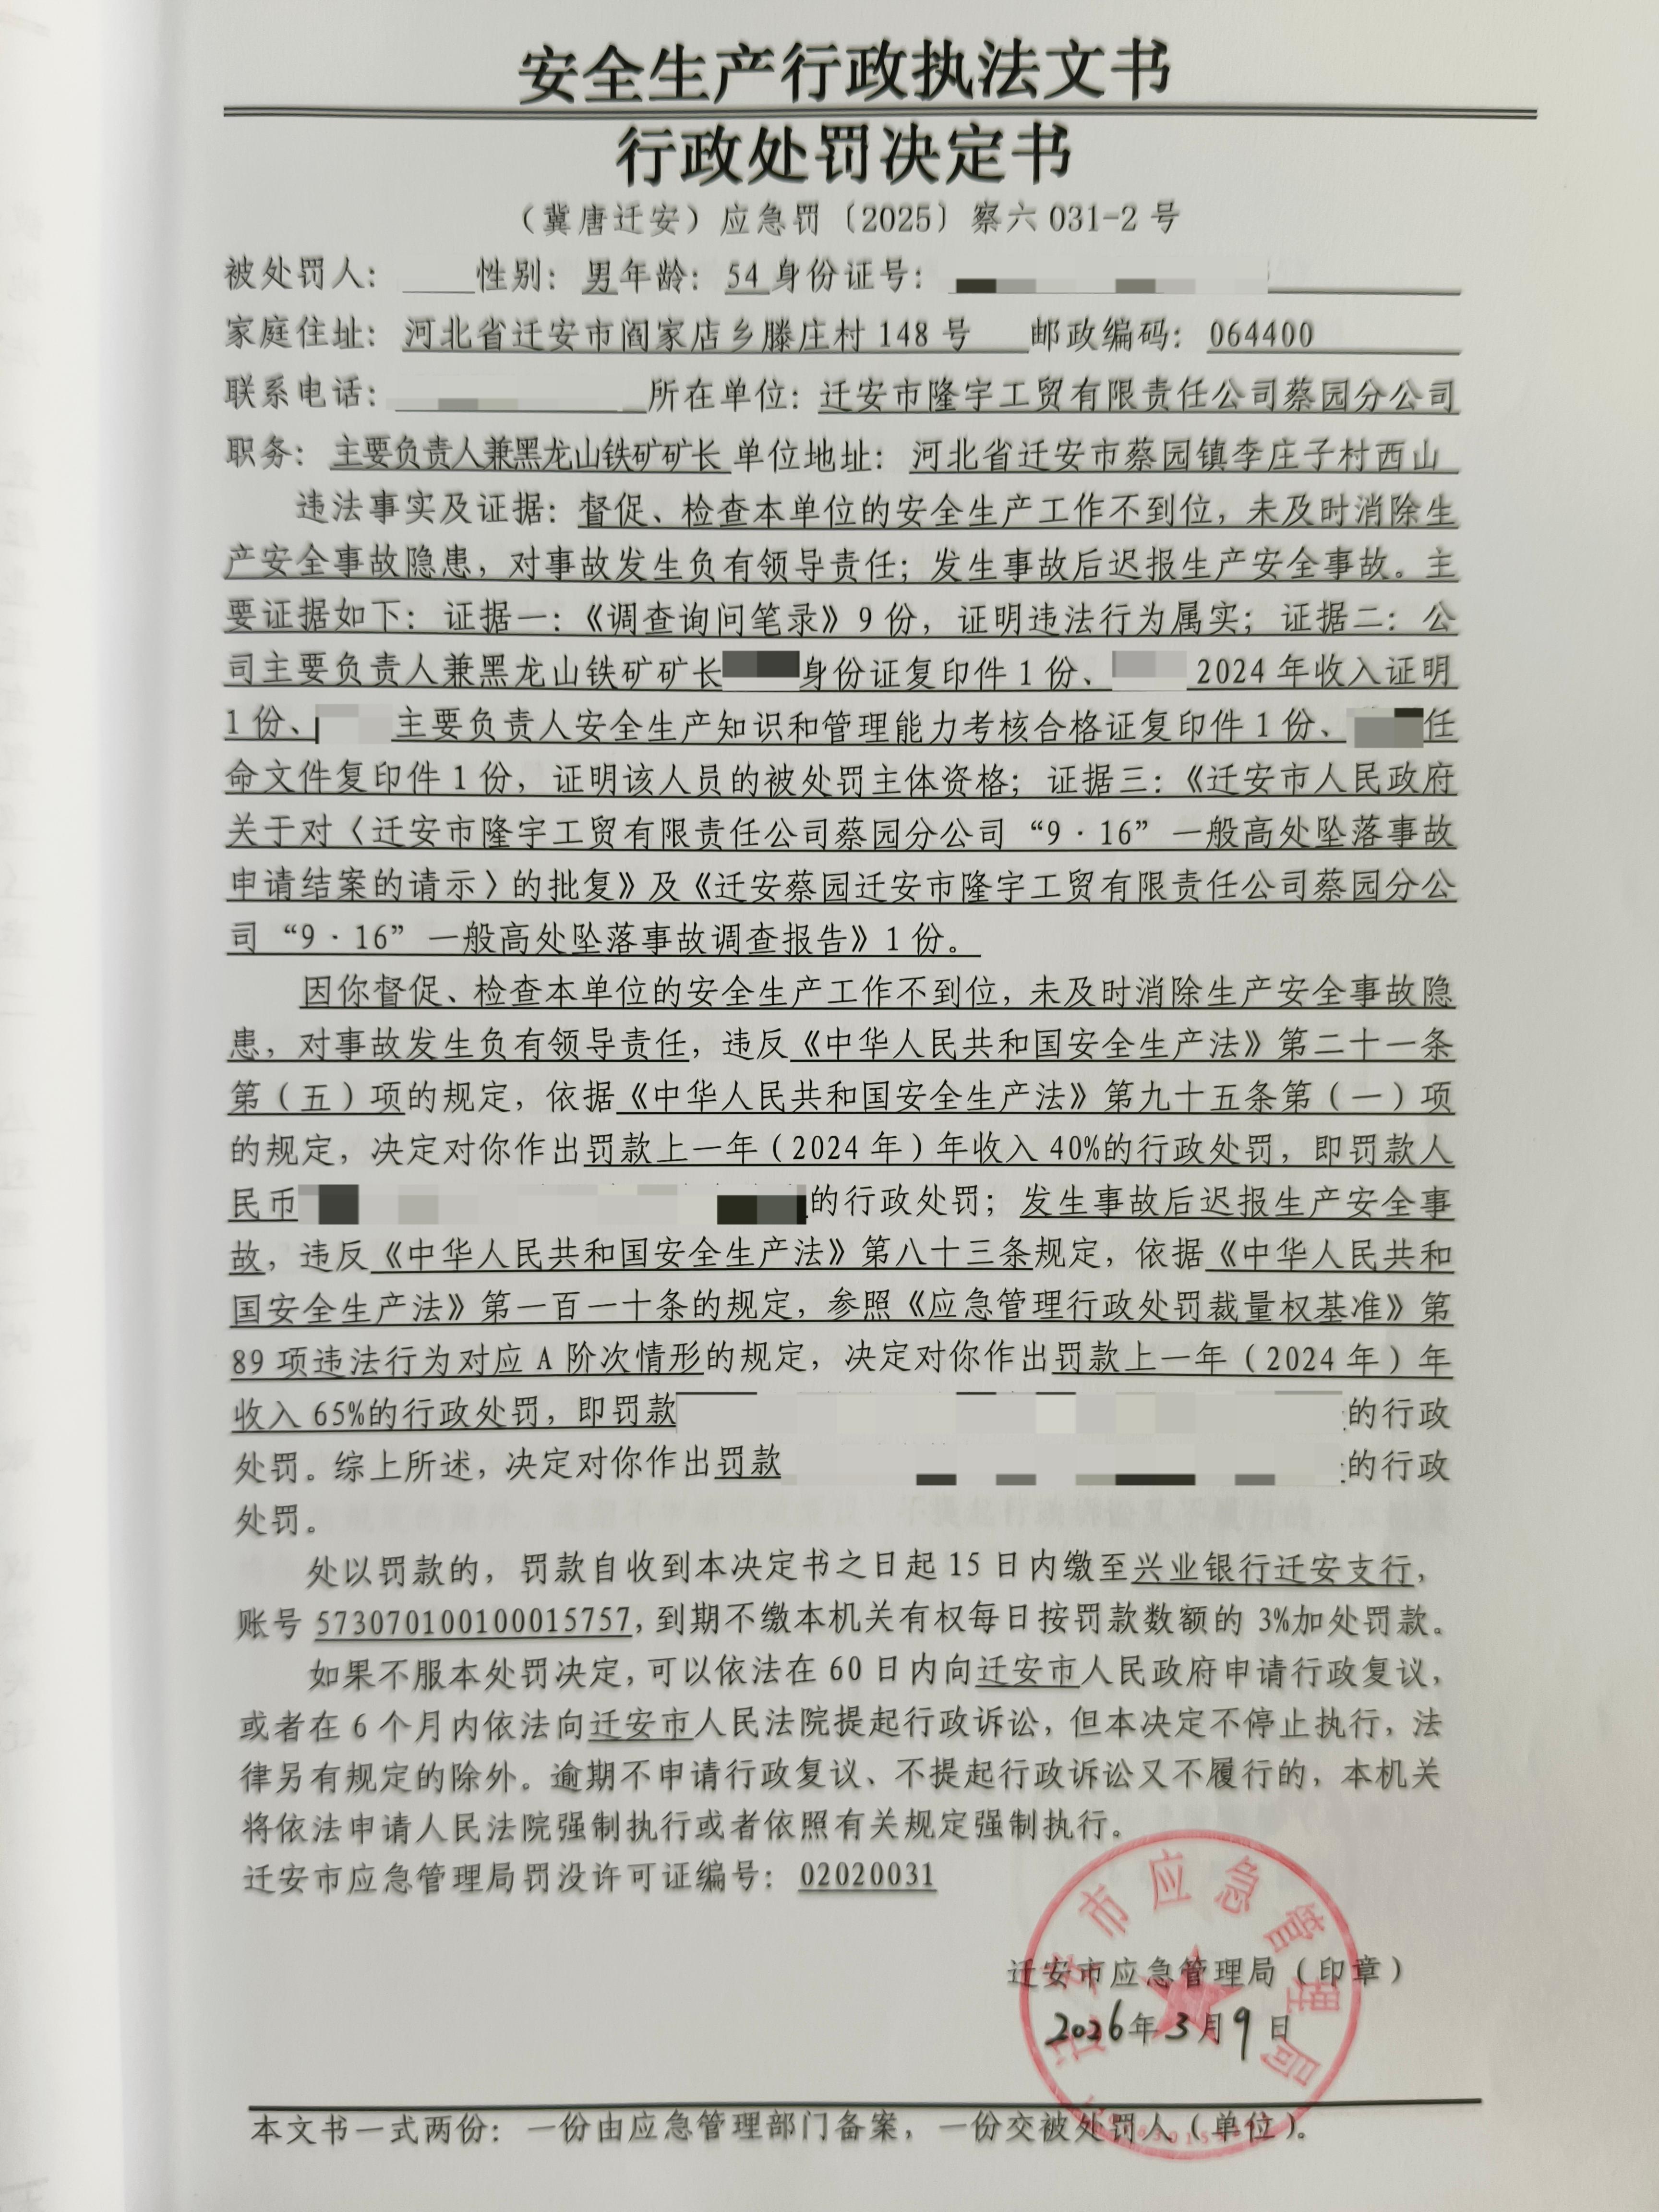 安全生产行政执法文书
行政处罚决定书
（冀唐迁安）应急罚〔2025〕察六 031-2 号
被处罚人： 性别：男年龄：54 身份证号：
家庭住址：河北省迁安市阎家店乡滕庄村 148 号 邮政编码：064400
联系电话： 所在单位：迁安市隆宇工贸有限责任公司蔡园分公司
职务：主要负责人兼黑龙山铁矿矿长 单位地址：河北省迁安市蔡园镇李庄子村西山
违法事实及证据：督促、检查本单位的安全生产工作不到位，未及时消除生
产安全事故隐患，对事故发生负有领导责任；发生事故后迟报生产安全事故。主
要证据如下：证据一：《调查询问笔录》9 份，证明违法行为属实；证据二：公
司主要负责人兼黑龙山铁矿矿长 身份证复印件 1 份、 2024 年收入证明
1 份、 主要负责人安全生产知识和管理能力考核合格证复印件 1 份、 任
命文件复印件 1 份，证明该人员的被处罚主体资格；证据三：《迁安市人民政府
关于对〈迁安市隆宇工贸有限责任公司蔡园分公司“9·16”一般高处坠落事故
申请结案的请示〉的批复》及《迁安蔡园迁安市隆宇工贸有限责任公司蔡园分公
司“9·16”一般高处坠落事故调查报告》1 份。
因你督促、检查本单位的安全生产工作不到位，未及时消除生产安全事故隐
患，对事故发生负有领导责任，违反《中华人民共和国安全生产法》第二十一条
第（五）项的规定，依据《中华人民共和国安全生产法》第九十五条第（一）项
的规定，决定对你作出罚款上一年（2024 年）年收入 40%的行政处罚，即罚款人
民币 的行政处罚；发生事故后迟报生产安全事
故，违反《中华人民共和国安全生产法》第八十三条规定，依据《中华人民共和
国安全生产法》第一百一十条的规定，参照《应急管理行政处罚裁量权基准》第
89 项违法行为对应 A 阶次情形的规定，决定对你作出罚款上一年（2024 年）年
收入 65%的行政处罚，即罚款 的行政
处罚。综上所述，决定对你作出罚款 的行政
处罚。
处以罚款的，罚款自收到本决定书之日起 15 日内缴至兴业银行迁安支行，
账号 573070100100015757，到期不缴本机关有权每日按罚款数额的 3%加处罚款。
如果不服本处罚决定，可以依法在 60 日内向迁安市人民政府申请行政复议，
或者在 6 个月内依法向迁安市人民法院提起行政诉讼，但本决定不停止执行，法
律另有规定的除外。逾期不申请行政复议、不提起行政诉讼又不履行的，本机关
将依法申请人民法院强制执行或者依照有关规定强制执行。
迁安市应急管理局罚没许可证编号：02020031
迁安市应急管理局（印章）
2026年3月9日
迁安市应急管理局
本文书一式两份：一份由应急管理部门备案，一份交被处罚人（单位）。